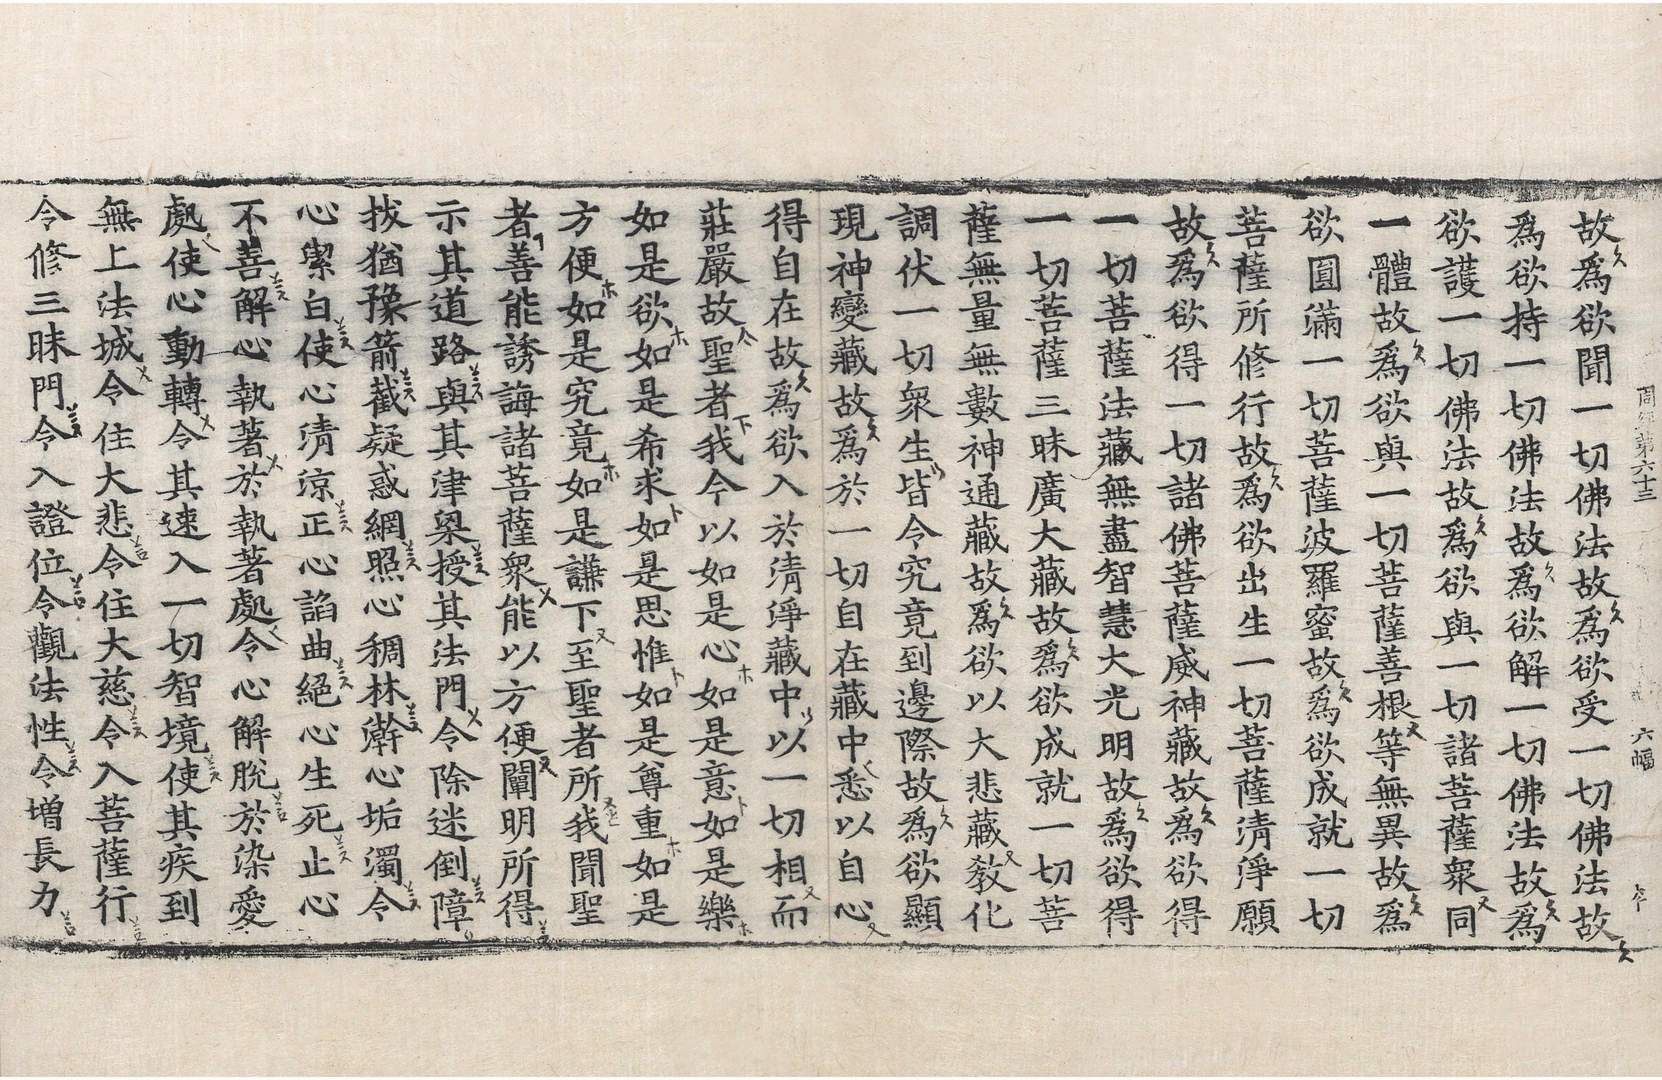 周經第六十三 六幅
故爲欲聞一切佛法故爲欲受一切佛法故
爲欲持一切佛法故爲欲解一切佛法故爲
欲護一切佛法故爲欲與一切諸菩薩衆同
一體故爲欲與一切菩薩善根等無異故爲
欲圓滿一切菩薩波羅蜜故爲欲成就一切
菩薩所修行故爲欲出生一切菩薩淸淨願
故爲欲得一切諸佛菩薩威神藏故爲欲得
一切菩薩法藏無盡智慧大光明故爲欲得
一切菩薩三昧廣大藏故爲欲成就一切菩
薩無量無數神通藏故爲欲以大悲藏敎化
調伏一切衆生皆令究竟到邊際故爲欲顯
現神變藏故爲於一切自在藏中悉以自心
得自在故爲欲入於淸淨藏中以一切相而
莊嚴故聖者我今以如是心如是意如是樂
如是欲如是希求如是思惟如是尊重如是
方便如是究竟如是謙下至聖者所我聞聖
者善能誘誨諸菩薩衆能以方便闡明所得
示其道路與其津梁授其法門令除迷倒障
拔猶豫箭截疑惑網照心稠林澣心垢濁令
心潔白使心淸涼正心諂曲絕心生死止心
不善解心執著於執著處令心解脫於染愛
處使心動轉令其速入一切智境使其疾到
無上法城令住大悲令住大慈令入菩薩行
令修三昧門令入證位令觀法性令增長力